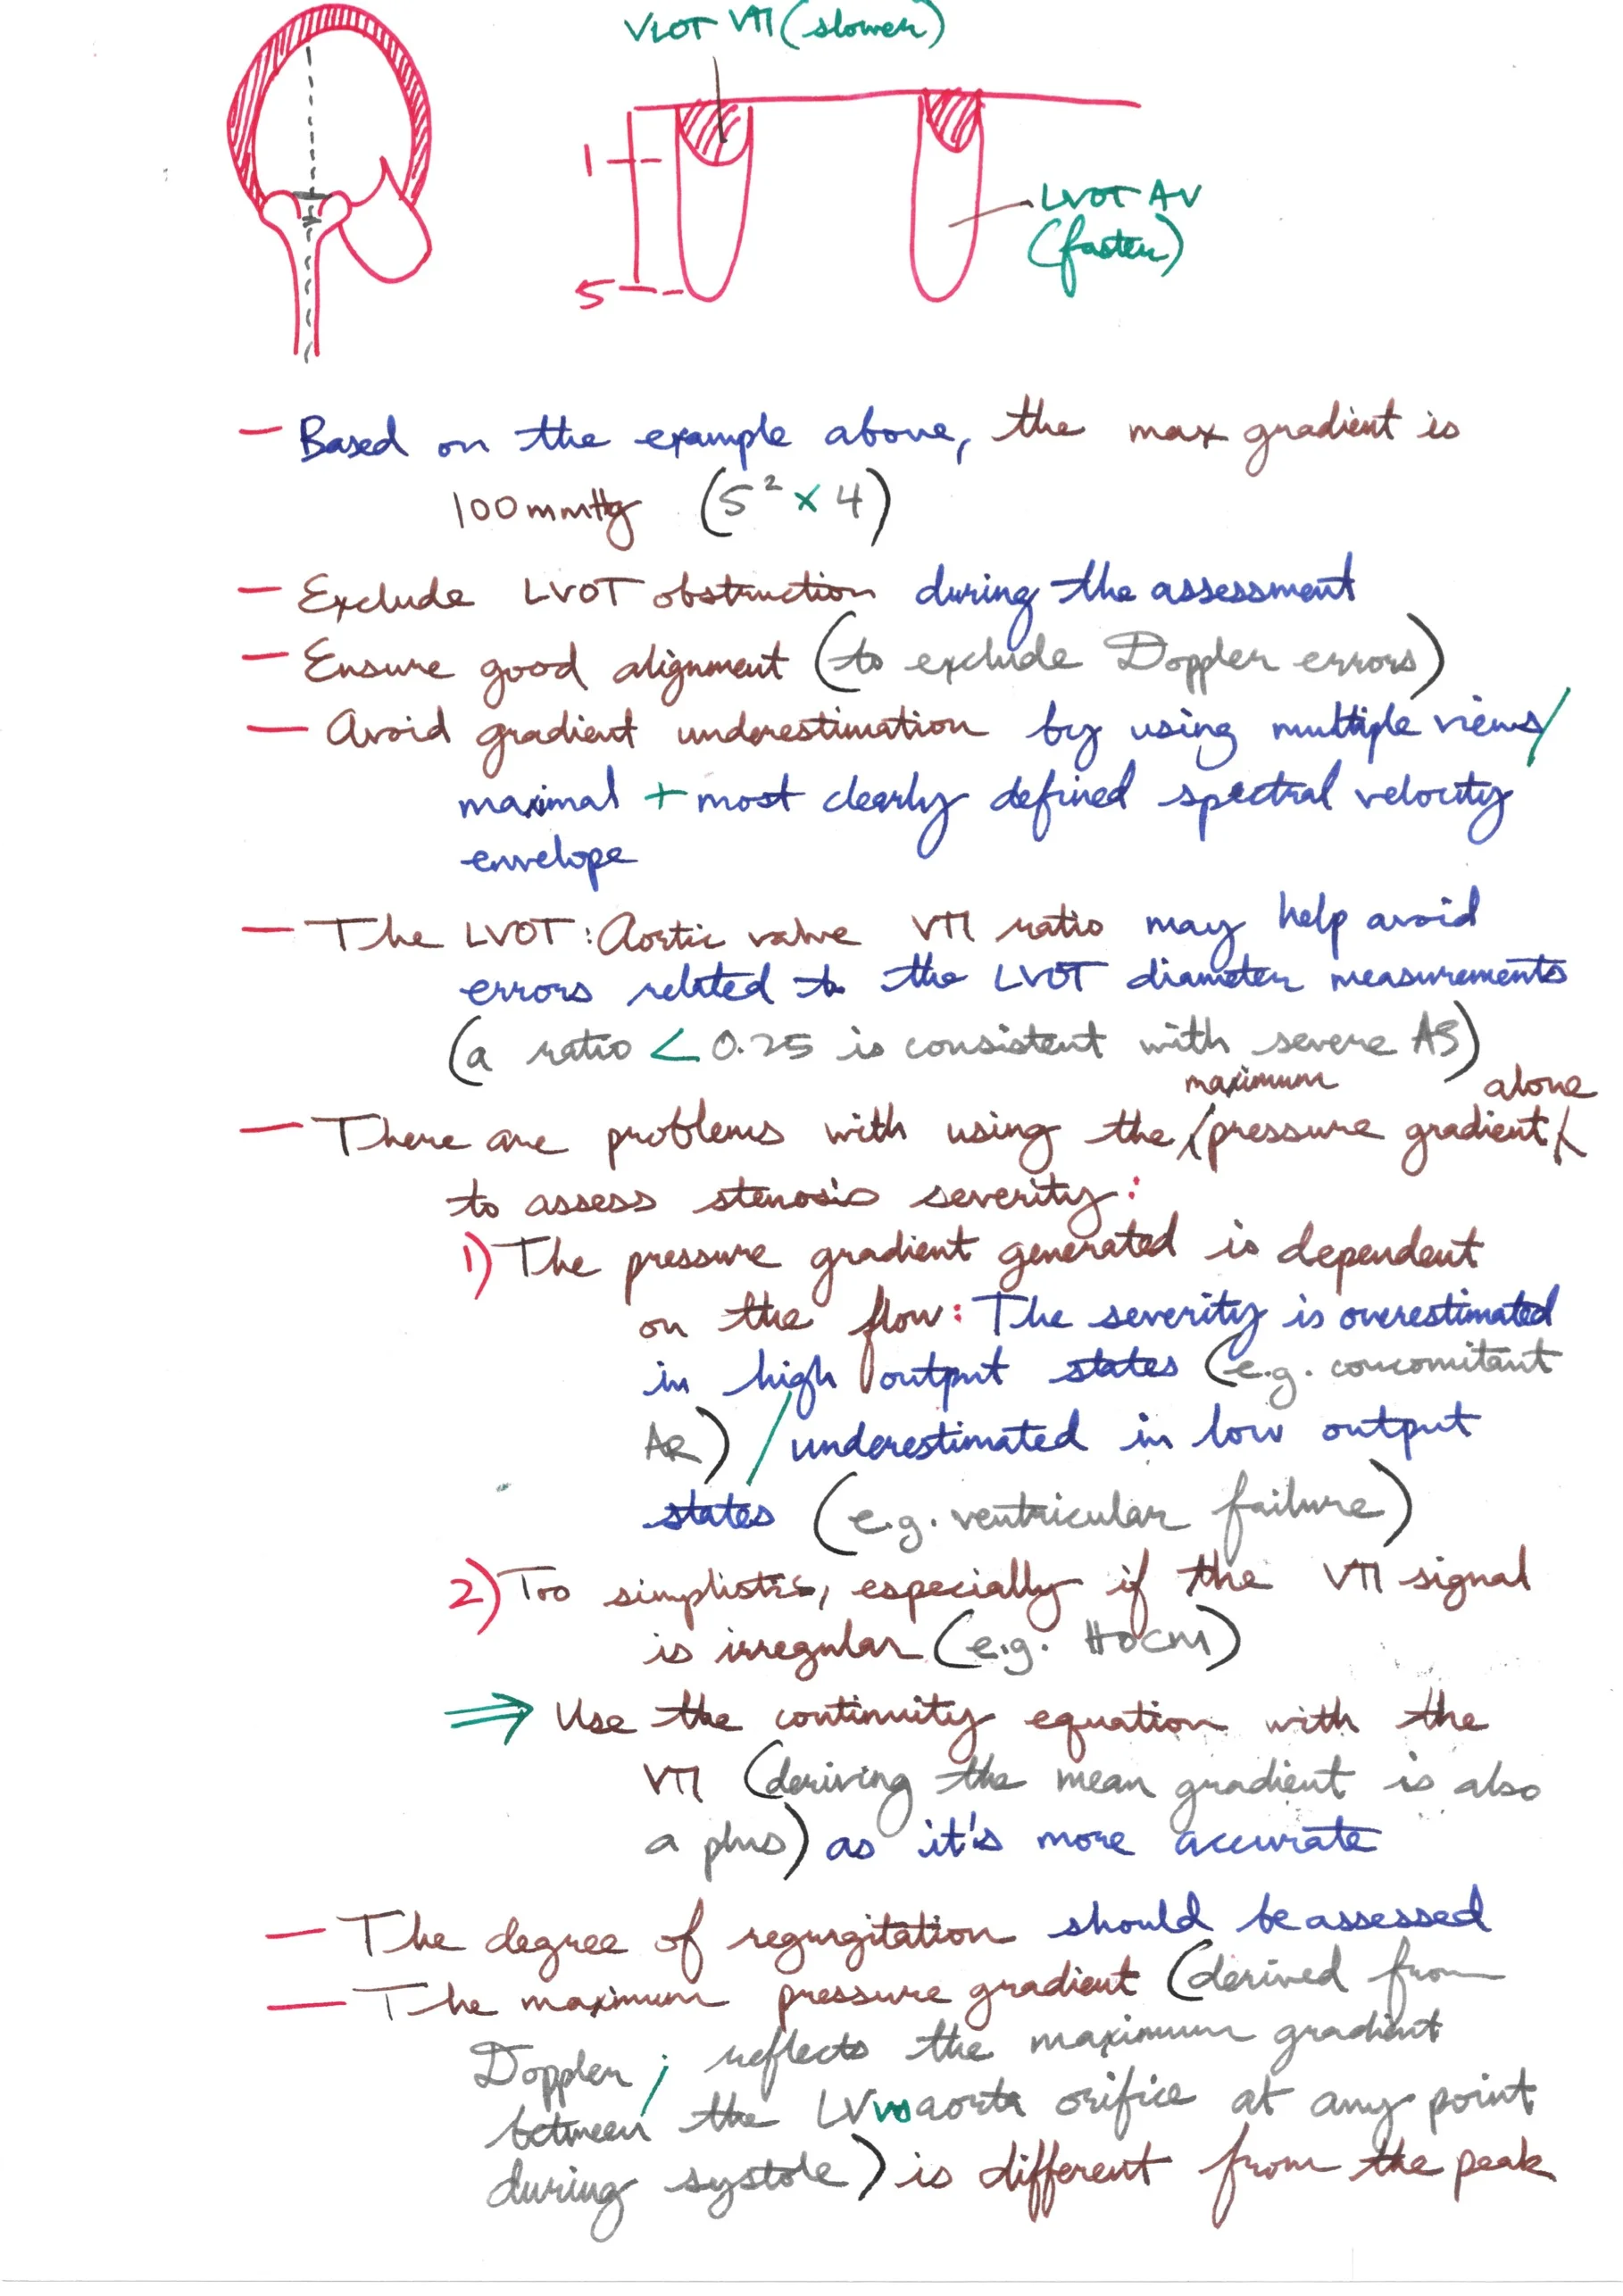 VLOT VTI (slower)
1
LVOT AV
(faster)
5
— Based on the example above, the max gradient is
100mmHg (5² × 4)
— Exclude LVOT obstruction during the assessment
— Ensure good alignment (to exclude Doppler errors)
— Avoid gradient underestimation by using multiple views/
maximal + most clearly defined spectral velocity
envelope
— The LVOT: Aortic valve VTI ratio may help avoid
errors related to the LVOT diameter measurements
(a ratio < 0.25 is consistent with severe AS)
maximum alone
— There are problems with using the pressure gradient
to assess stenosis severity:
1) The pressure gradient generated is dependent
on the flow: The severity is overestimated
in high output states (e.g. concomitant
AR) / underestimated in low output
states (e.g. ventricular failure)
2) Too simplistic, especially if the VTI signal
is irregular (e.g. HOCM)
⇒ Use the continuity equation with the
VTI (deriving the mean gradient is also
a plus) as it's more accurate
— The degree of regurgitation should be assessed
— The maximum pressure gradient (derived from
Doppler / reflects the maximum gradient
between the LV vs aorta orifice at any point
during systole) is different from the peak